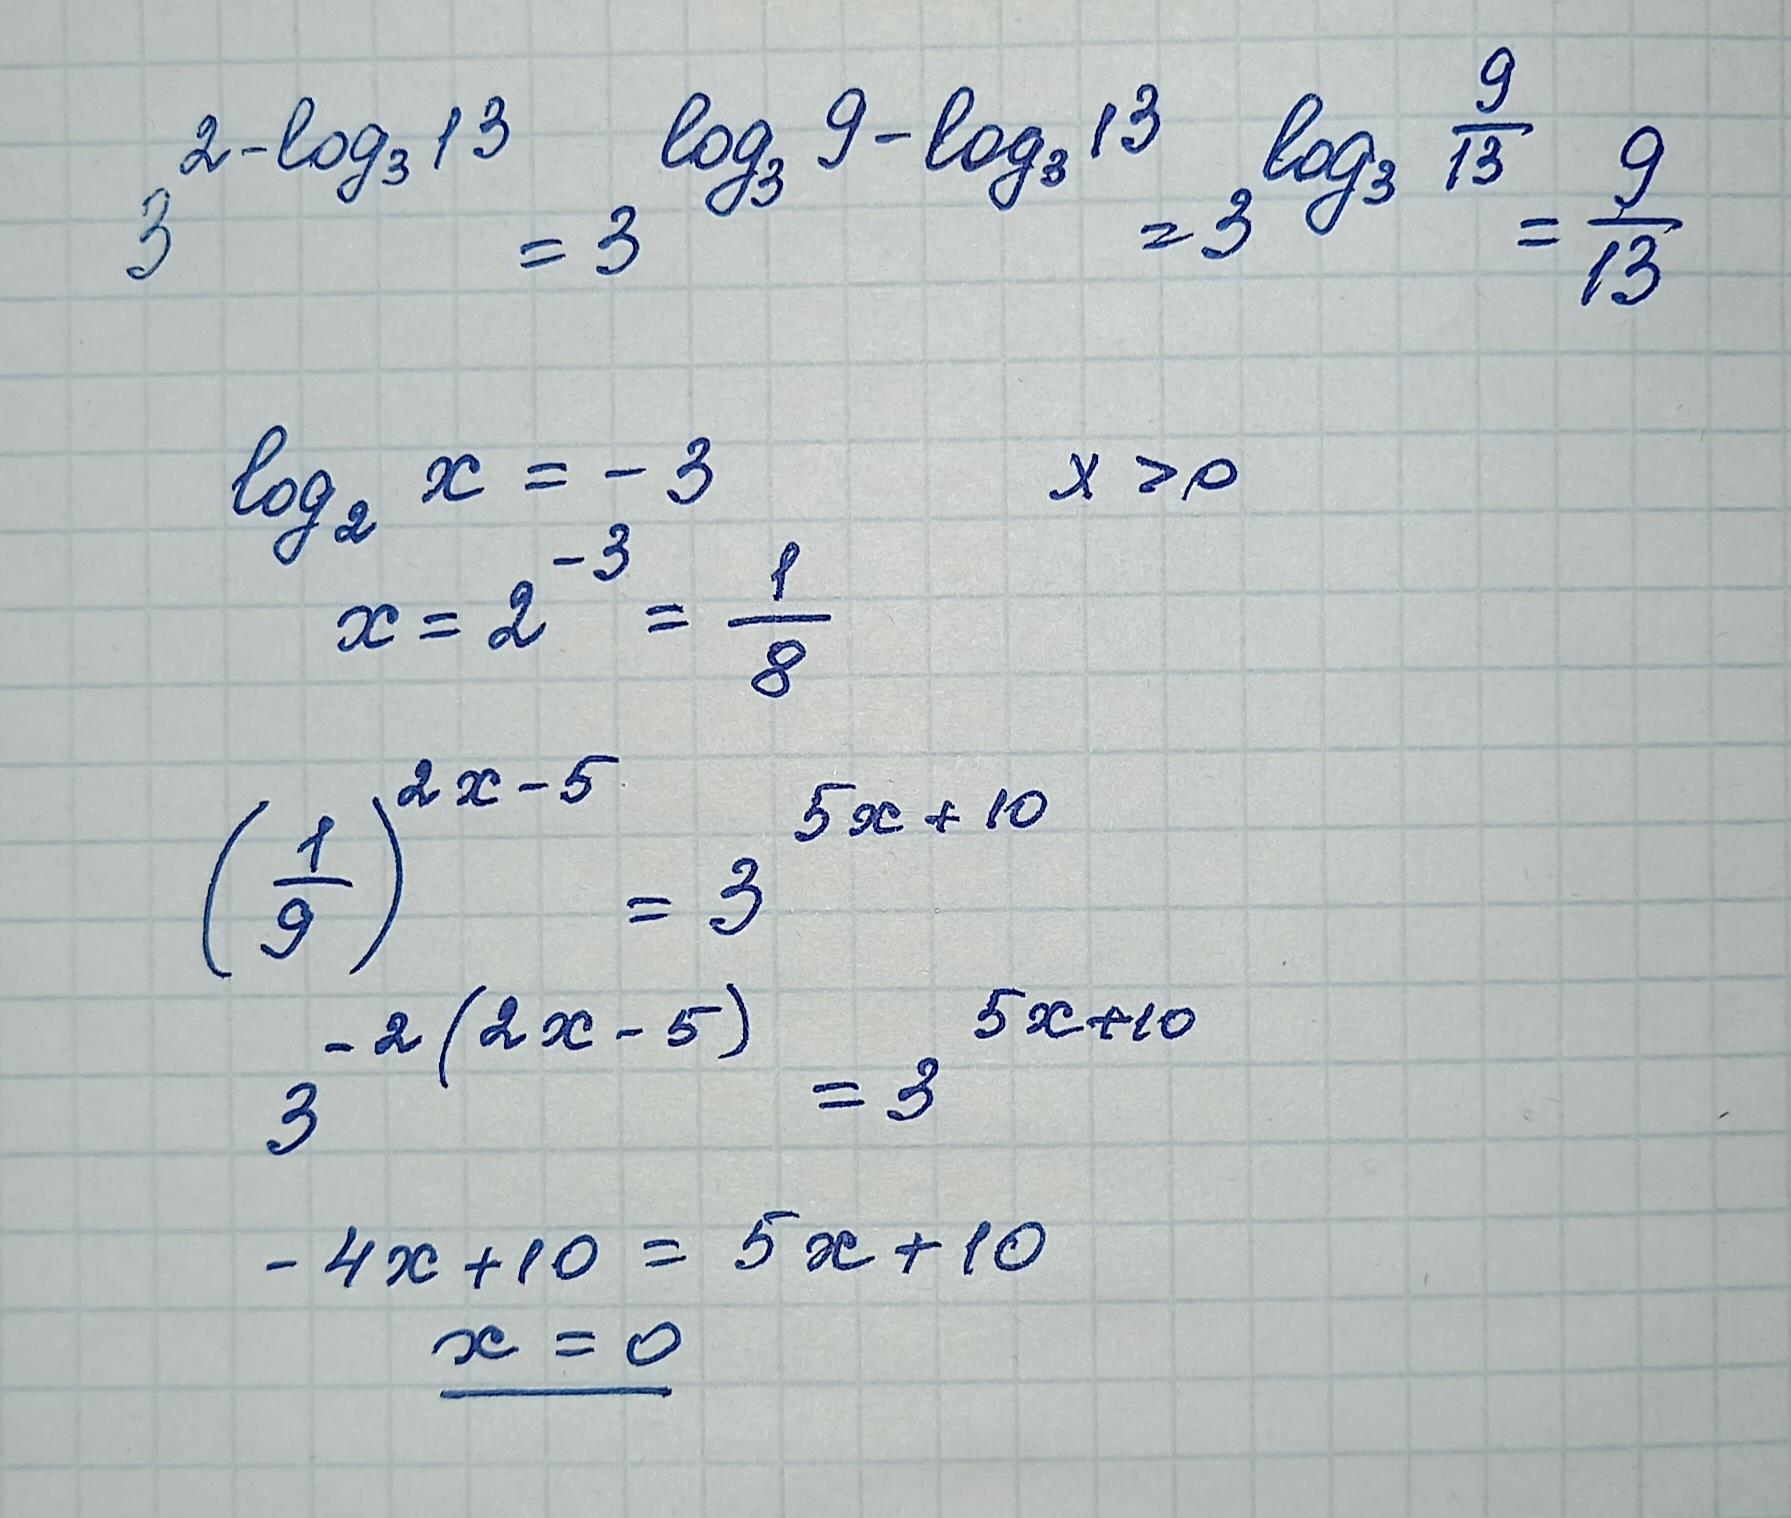 3^{2-log_3 13} = 3^{log_3 9 - log_3 13} = 3^{log_3 \frac{9}{13}} = \frac{9}{13}
log_2 x = -3 x > 0
x = 2^{-3} = \frac{1}{8}
(\frac{1}{9})^{2x-5} = 3^{5x+10}
3^{-2(2x-5)} = 3^{5x+10}
-4x+10 = 5x+10
x = 0